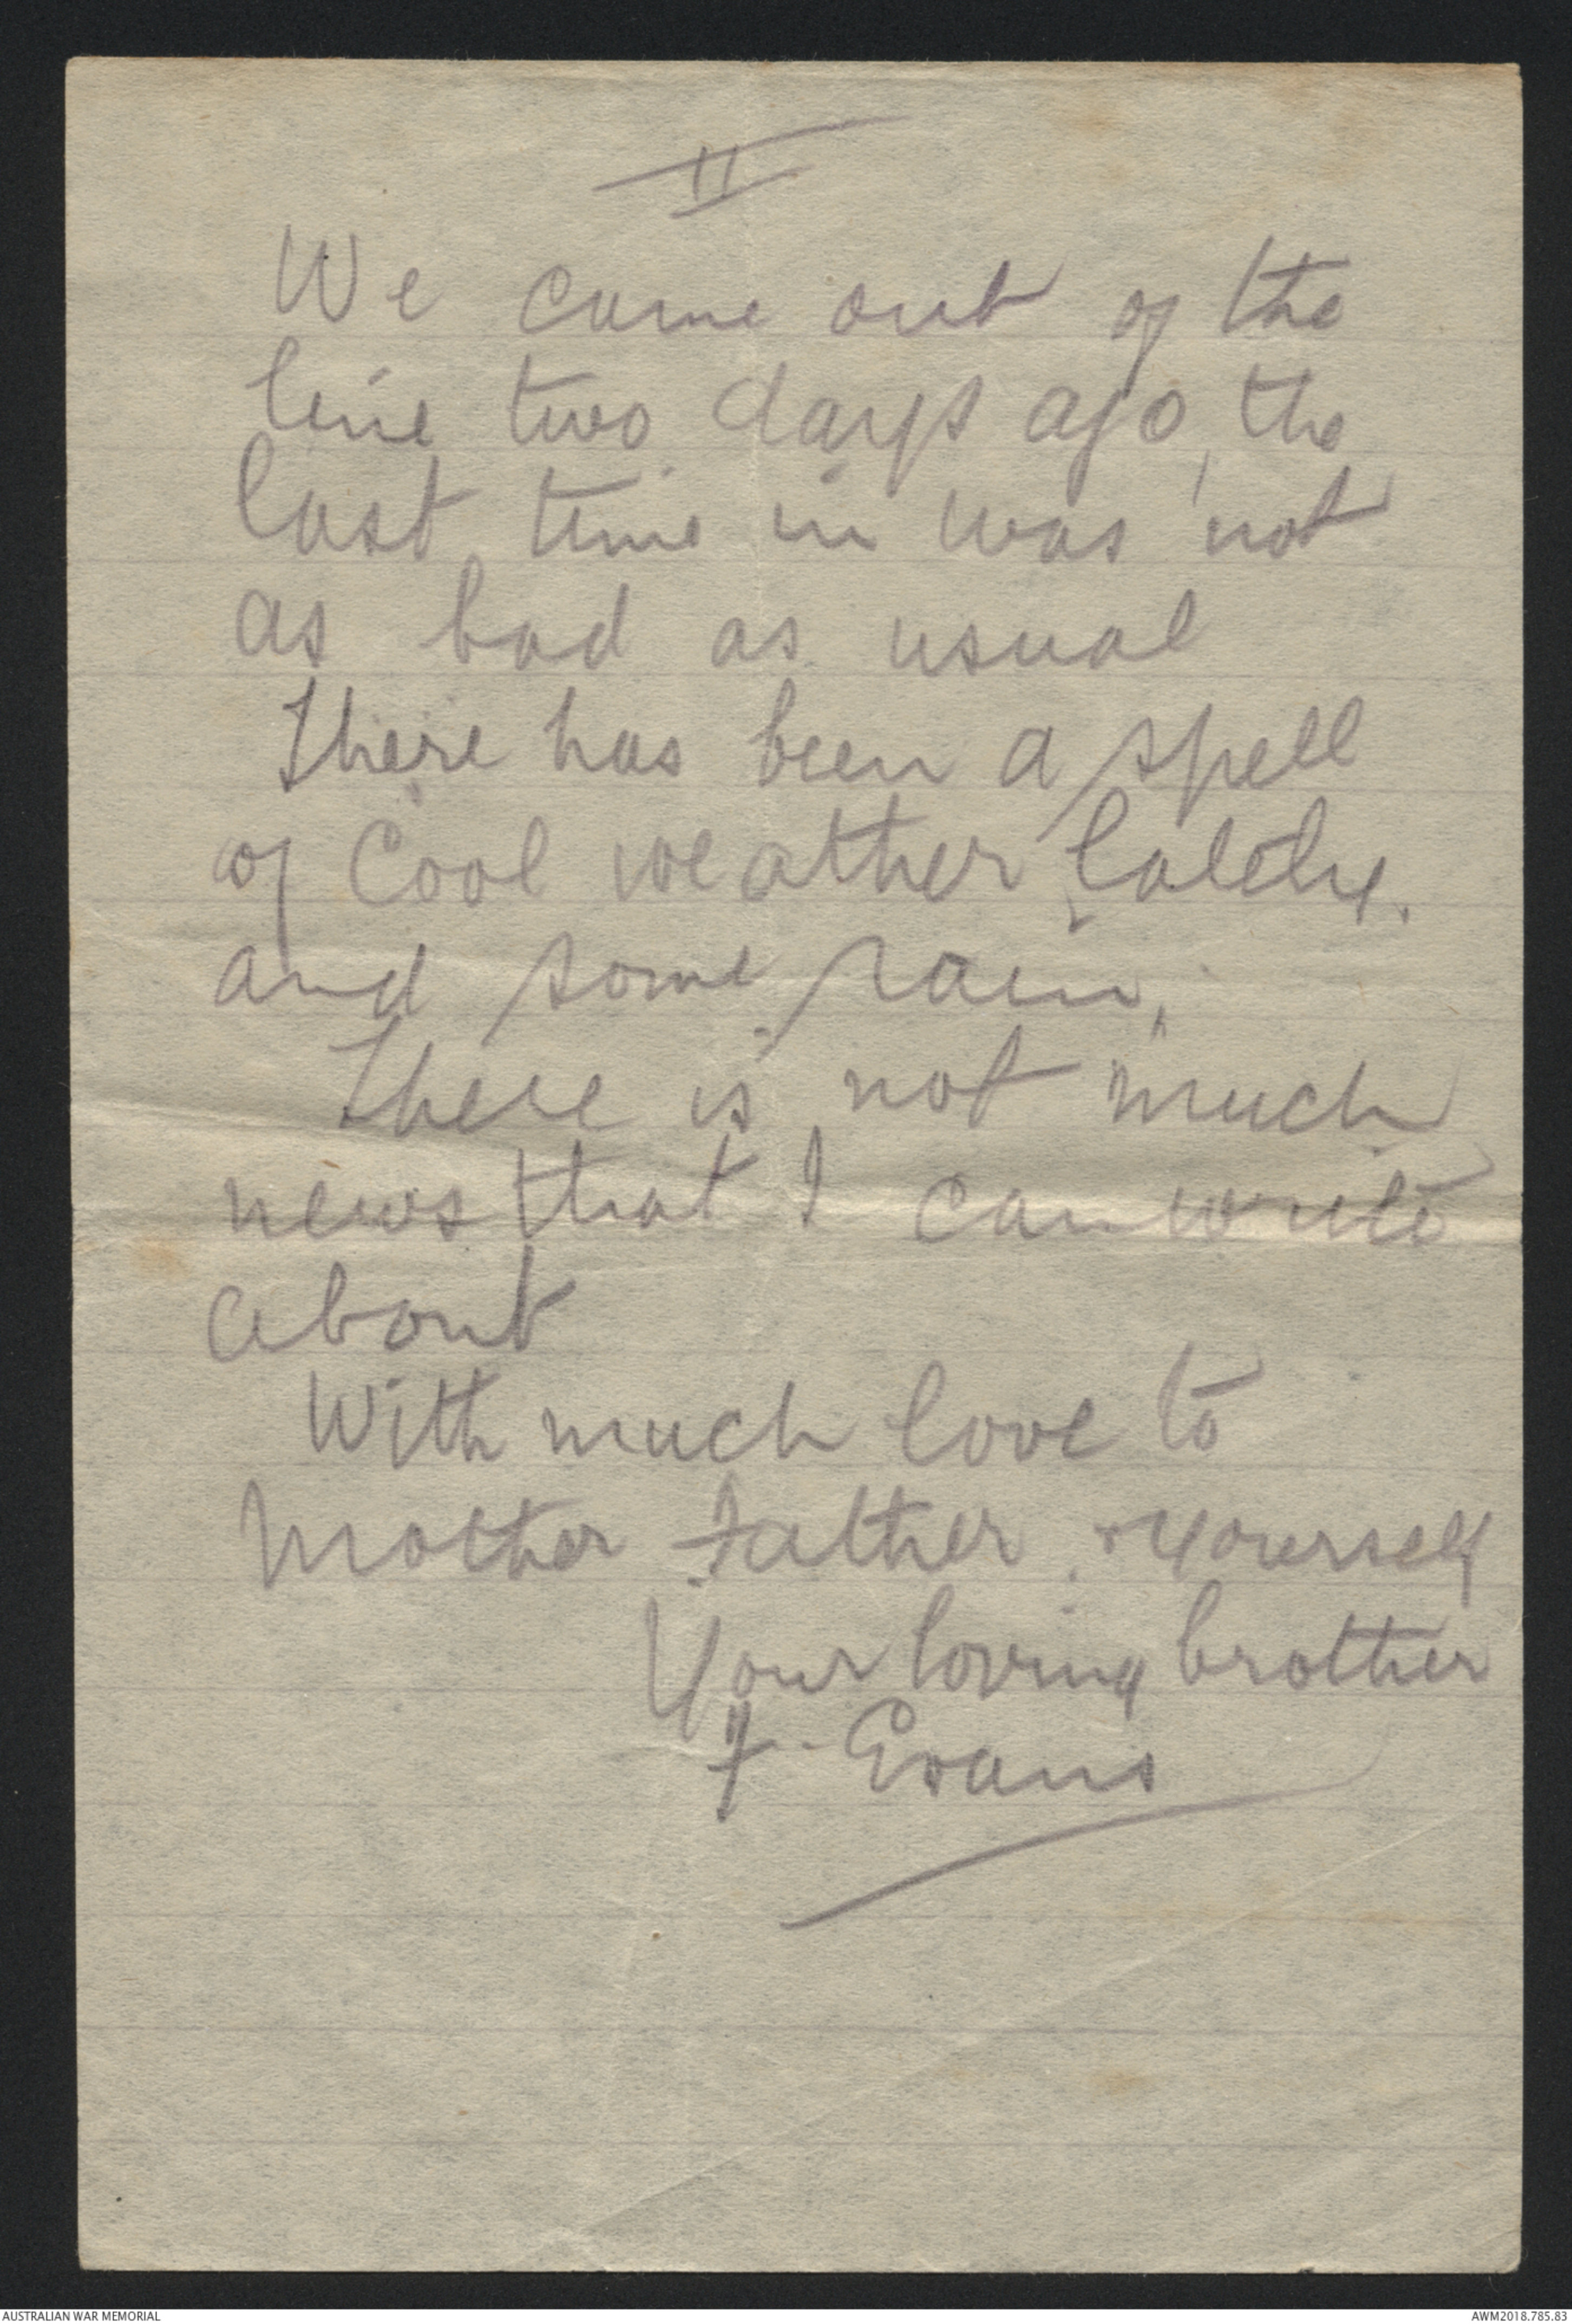 II
We came out of the
line two days ago, the
last time in was not
as bad as usual
There has been a spell
of cool weather lately.
and some rain,
There is not much
news that I can write
about
With much love to
Mother Father & yourself
Your loving brother
F. Evans
AUSTRALIAN WAR MEMORIAL
AWM2018.785.83